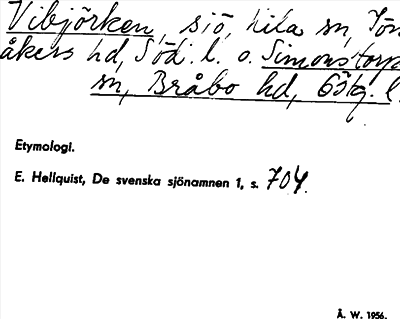 Vibjörken, sjö, Kila sn, Jön
åkers hd, Söd. l. o. Simonstorp
sn, Bråbo hd, Östg. l.
Etymologi.
E. Hellquist, De svenska sjönamnen 1, s. 704.
Å. W. 1956.